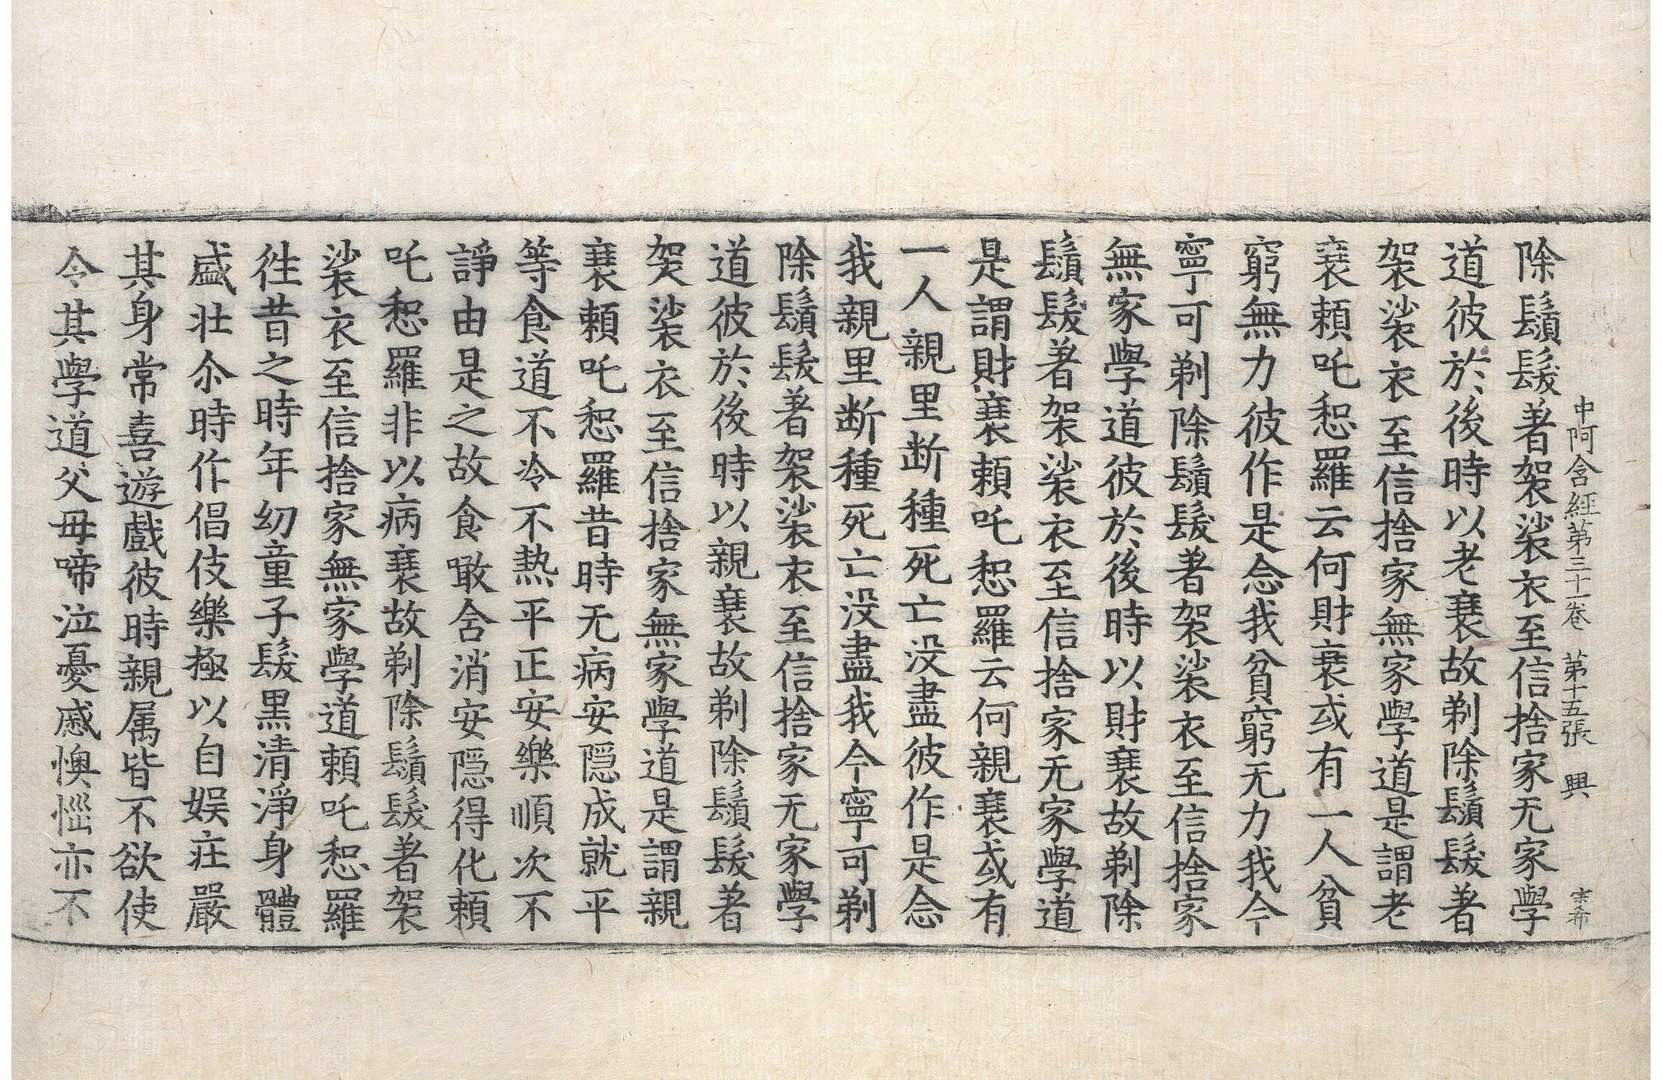 中阿含經第三十一卷 第十五張 興 宗希
除鬚髮著袈裟衣至信捨家无家學
道彼於後時以老衰故剃除鬚髮著
袈裟衣至信捨家無家學道是謂老
衰頼吒惒羅云何財衰或有一人貧
窮無力彼作是念我貧窮无力我今
寧可剃除鬚髮著袈裟衣至信捨家
無家學道彼於後時以財衰故剃除
鬚髮著袈裟衣至信捨家无家學道
是謂財衰頼吒惒羅云何親衰或有
一人親里断種死亡没盡彼作是念
我親里断種死亡没盡我今寧可剃
除鬚髮著袈裟衣至信捨家无家學
道彼於後時以親衰故剃除鬚髮著
袈裟衣至信捨家無家學道是謂親
衰頼吒惒羅昔時无病安隠成就平
等食道不冷不熱平正安樂順次不
諍由是之故食噉含消安隠得化頼
吒惒羅非以病衰故剃除鬚髮著袈
裟衣至信捨家無家學道頼吒惒羅
徃昔之時年幼童子髮黒清淨身體
盛壯尒時作倡伎樂極以自娱莊嚴
其身常喜遊戲彼時親属皆不欲使
令其學道父母啼泣憂慼懊惱亦不